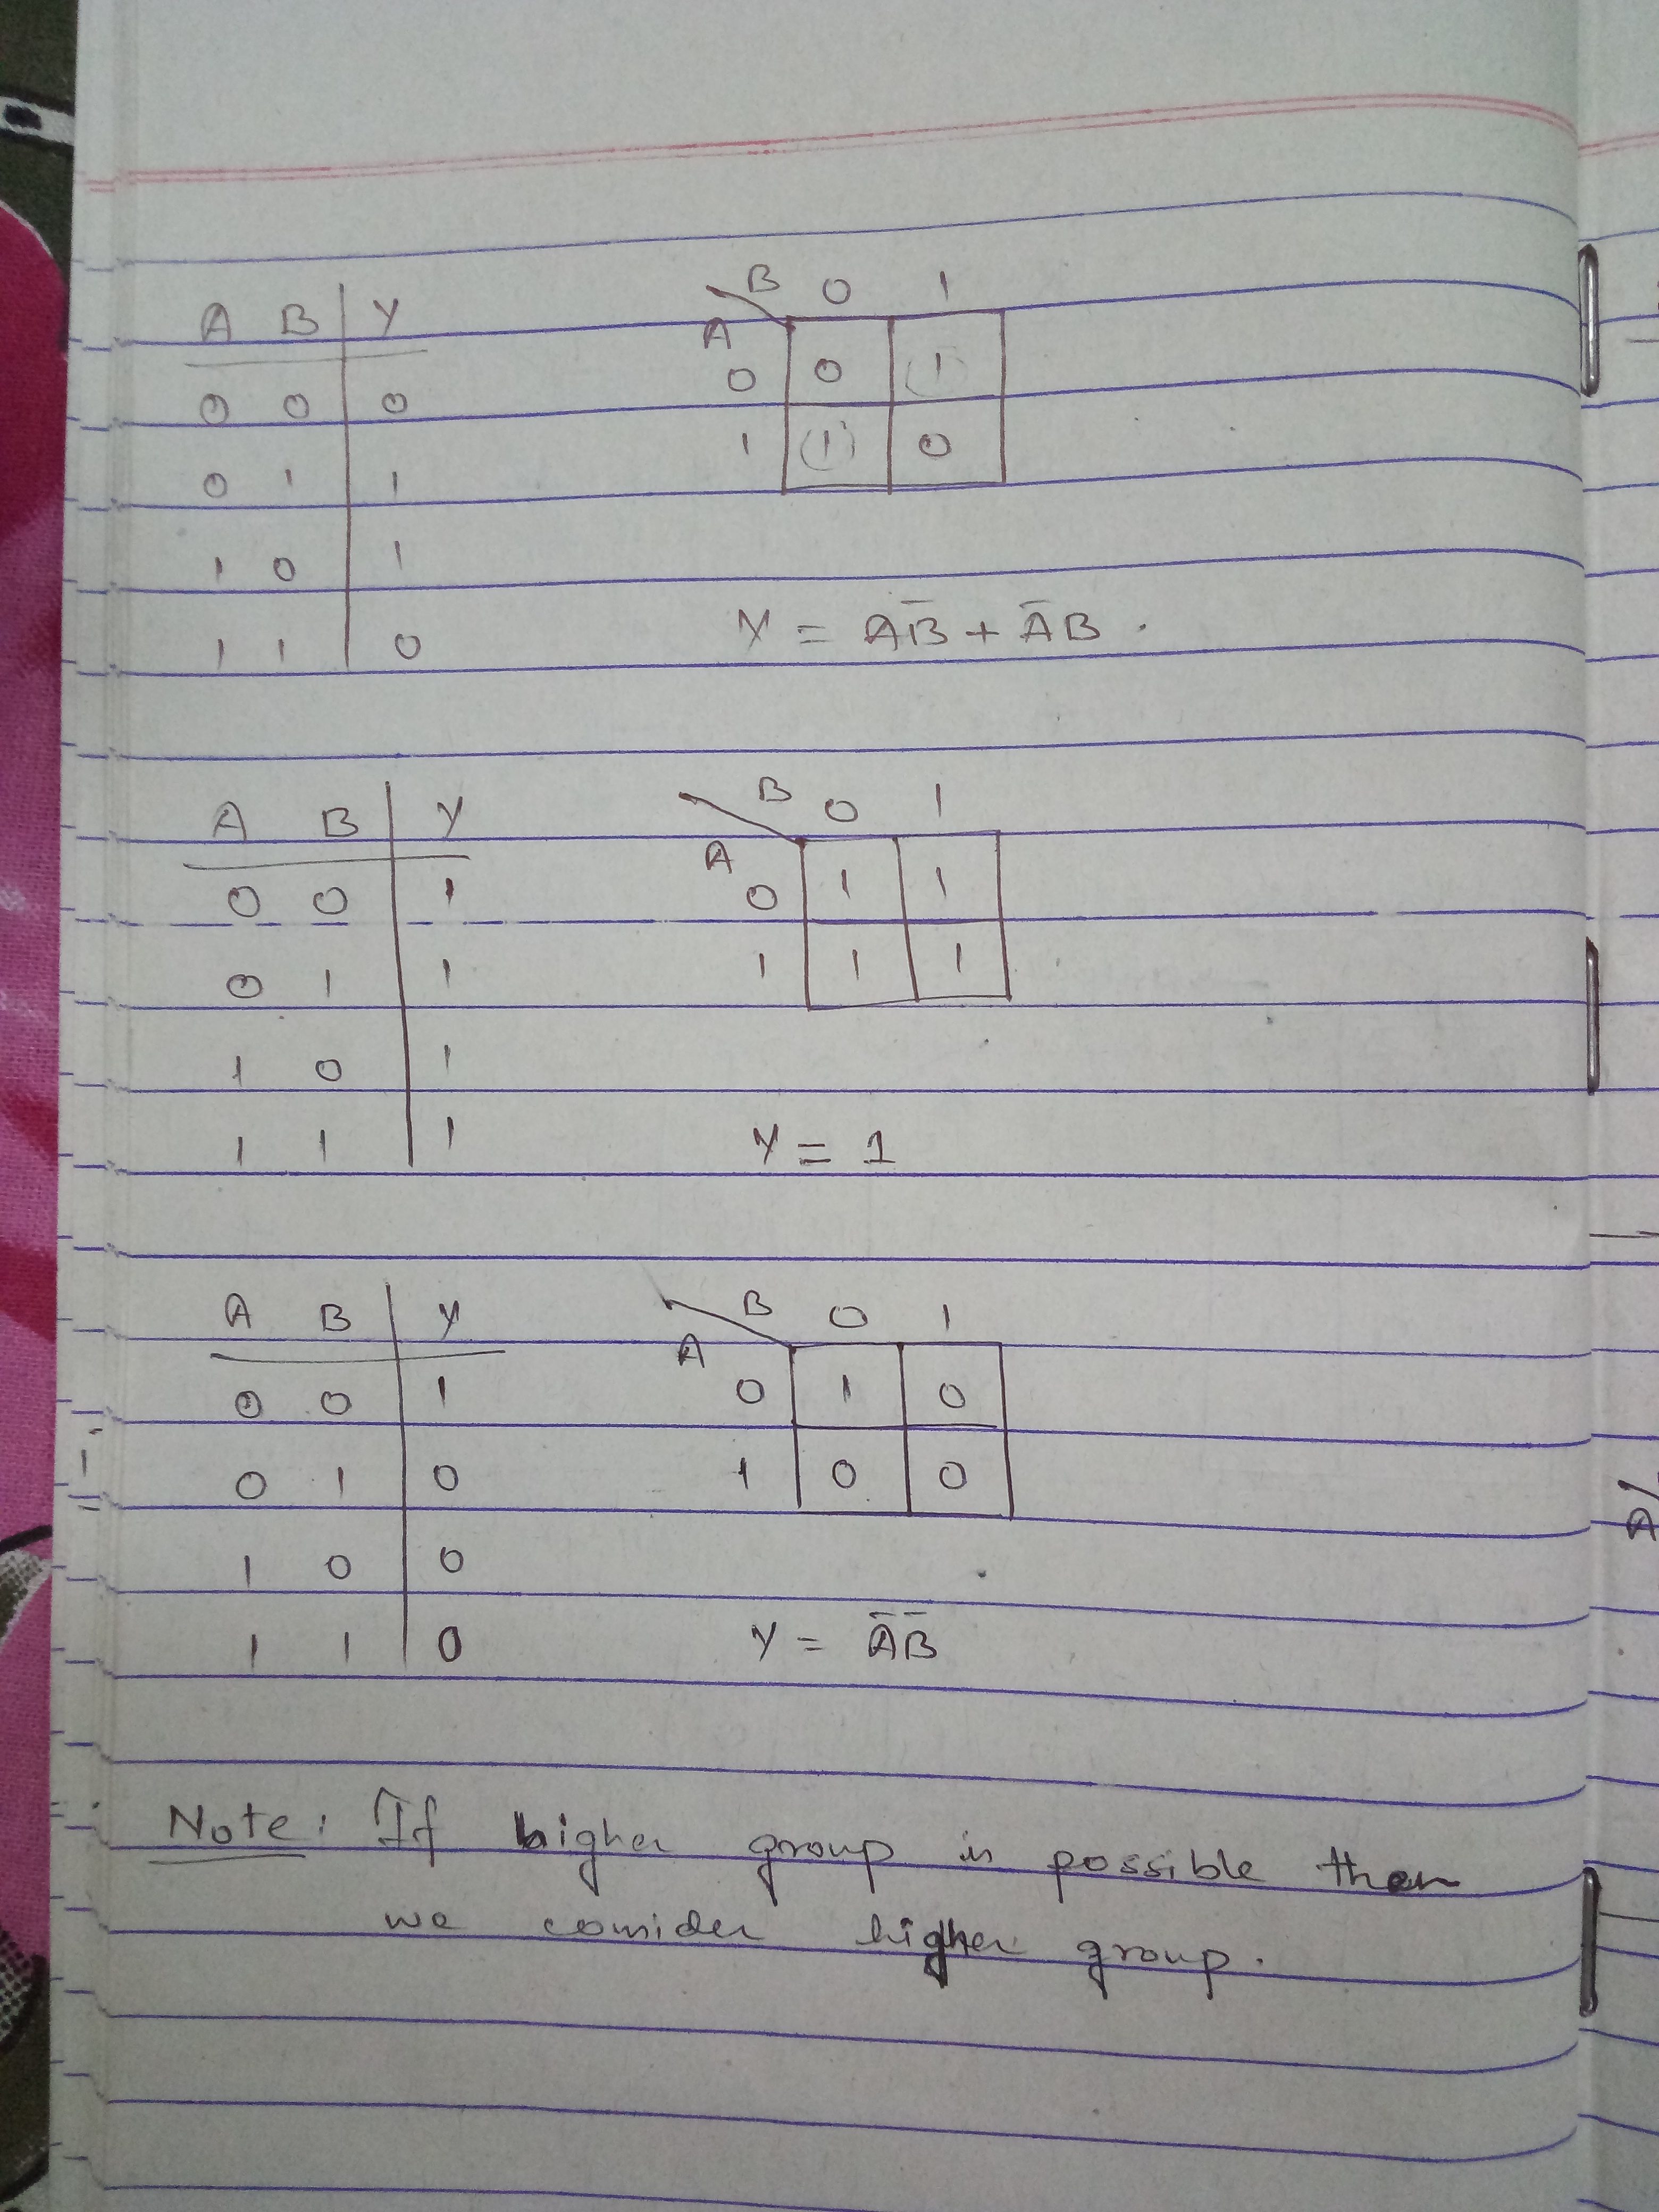 A B Y
0 0 0
0 1 1
1 0 1
1 1 0
B 0 1
A
0 0 1
1 1 0
Y = AB̅ + A̅B.
A B Y
0 0 1
0 1 1
1 0 1
1 1 1
B 0 1
A
0 1 1
1 1 1
Y = 1
A B Y
0 0 1
0 1 0
1 0 0
1 1 0
B 0 1
A
0 1 0
1 0 0
Y = A̅B̅
Note: If higher group is possible then
we consider higher group.
A